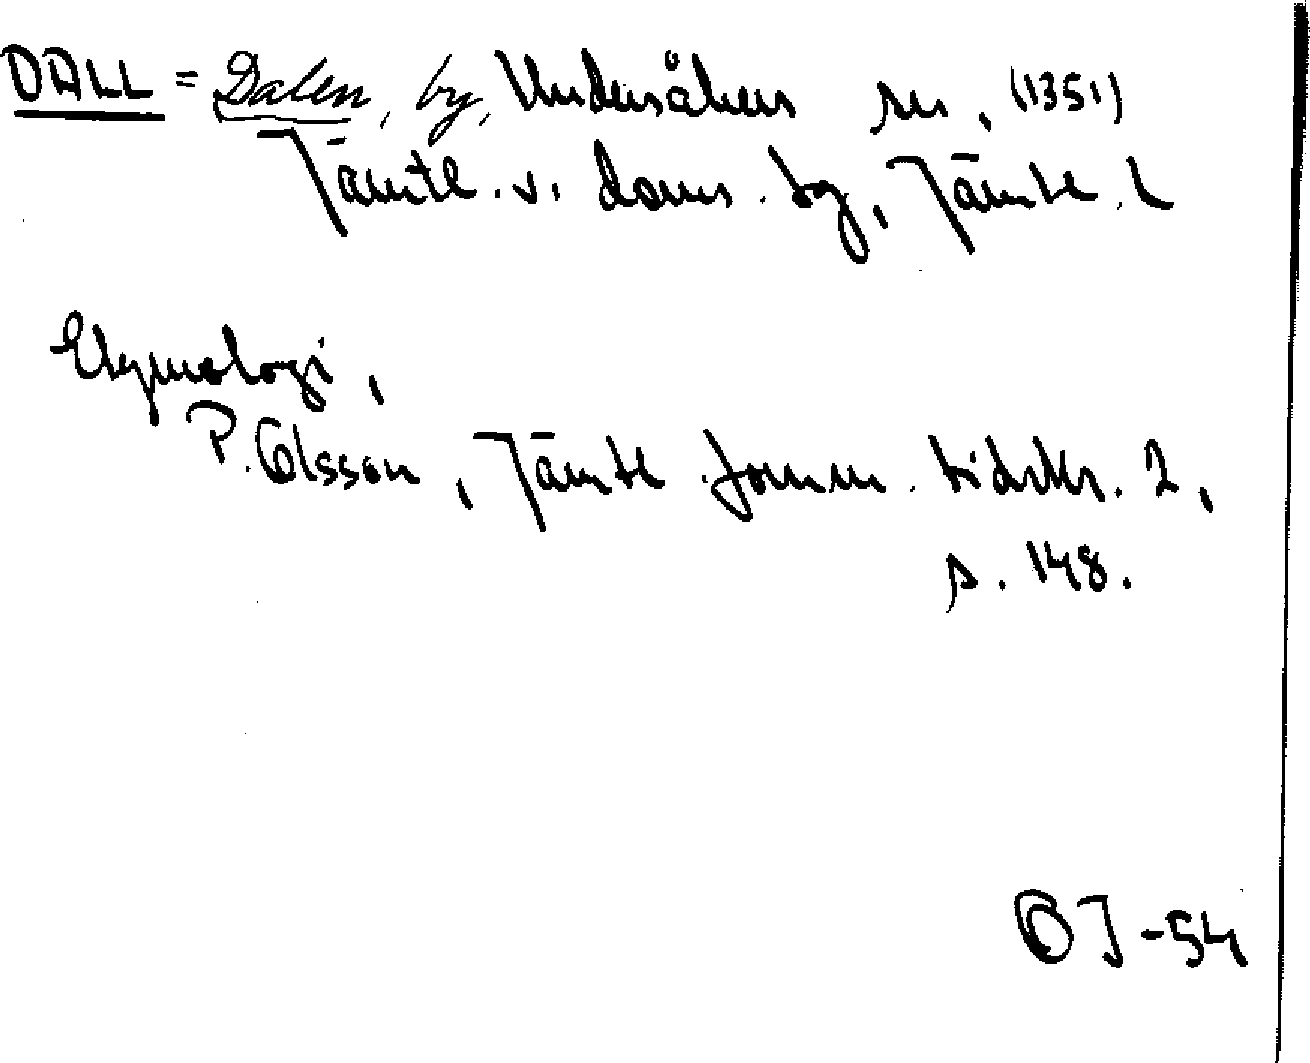 DALL = Dalen, by, Undersåkers sn, (1351)
Jämtl. v. doms. bg, Jämtl. l
Etymologi,
P. Olsson, Jämtl. fornm. tidskr. 2,
s. 148.
OJ-54